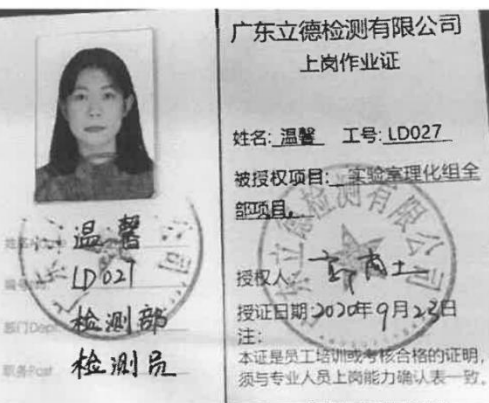 姓名Name 温馨
编号No LD027
部门Dept 检测部
职务Post 检测员
广东立德检测有限公司
上岗作业证
姓名: 温馨 工号: LD027
被授权项目: 实验室理化组全
部项目。
授权人:
授证日期:2020年9月23日
注:
本证是员工培训或考核合格的证明,
须与专业人员上岗能力确认表一致。
广东立德检测有限公司